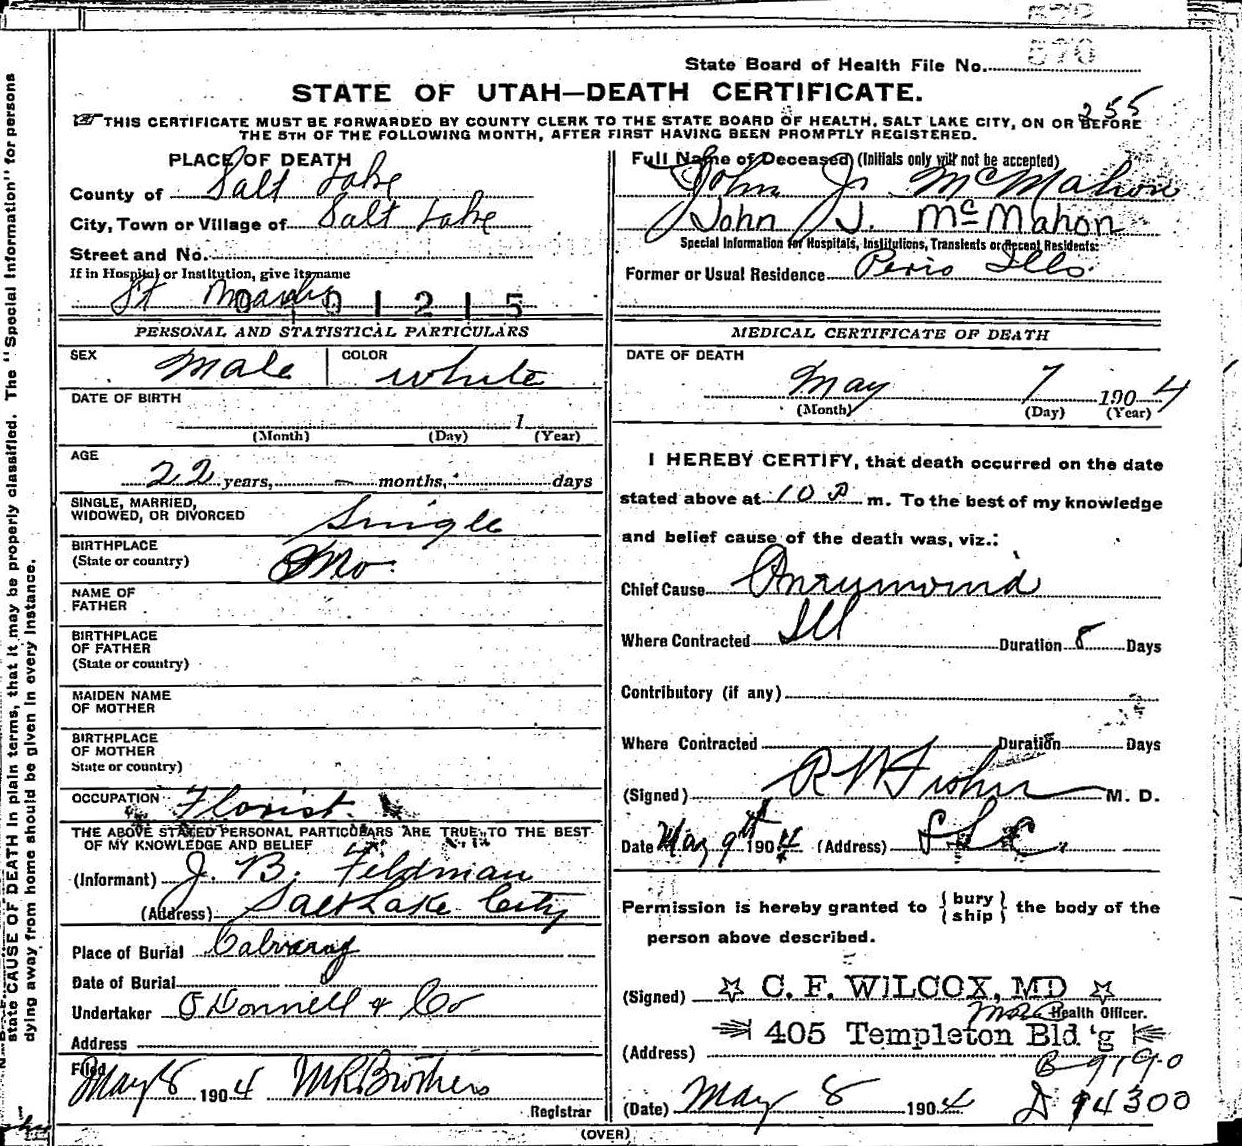 572
570
State Board of Health File No.
STATE OF UTAH—DEATH CERTIFICATE.
255
THIS CERTIFICATE MUST BE FORWARDED BY COUNTY CLERK TO THE STATE BOARD OF HEALTH, SALT LAKE CITY, ON OR BEFORE
THE 5TH OF THE FOLLOWING MONTH, AFTER FIRST HAVING BEEN PROMPTLY REGISTERED.
PLACE OF DEATH
County of Salt Lake
City, Town or Village of Salt Lake
Street and No.
If in Hospital or Institution, give its name
St Marks
0 1 0 1 2 1 5
Full Name of Deceased (Initials only will not be accepted)
John J. McMahon
John J. McMahon
Special Information for Hospitals, Institutions, Transients or Recent Residents:
Former or Usual Residence Perio Ills.
PERSONAL AND STATISTICAL PARTICULARS
SEX Male COLOR White
DATE OF BIRTH
1
(Month) (Day) (Year)
AGE
22 years, — months, days
SINGLE, MARRIED,
WIDOWED, OR DIVORCED Single
BIRTHPLACE
(State or country) Mo.
NAME OF
FATHER
BIRTHPLACE
OF FATHER
(State or country)
MAIDEN NAME
OF MOTHER
BIRTHPLACE
OF MOTHER
State or country)
OCCUPATION Florist.
THE ABOVE STATED PERSONAL PARTICULARS ARE TRUE TO THE BEST
OF MY KNOWLEDGE AND BELIEF
(Informant) J. B. Feldman
(Address) Salt Lake City
Place of Burial Calvary
Date of Burial
Undertaker O'Donnell & Co
Address
Filed May 8 1904 M R Brothers
Registrar
MEDICAL CERTIFICATE OF DEATH
DATE OF DEATH
May 7 1904
(Month) (Day) (Year)
I HEREBY CERTIFY, that death occurred on the date
stated above at 10 P m. To the best of my knowledge
and belief cause of the death was, viz.:
Chief Cause
Where Contracted Ill Duration 8 Days
Contributory (if any)
Where Contracted Duration Days
(Signed) M. D.
Date May 9th 1904 (Address) S L C.
Permission is hereby granted to {bury
ship} the body of the
person above described.
(Signed) C. F. WILCOX, MD
Health Officer.
(Address) 405 Templeton Bld'g
B-9190
(Date) May 8 1904 D 94300
(OVER)
state CAUSE OF DEATH in plain terms, that it may be properly classified. The "Special Information" for persons
dying away from home should be given in every instance.